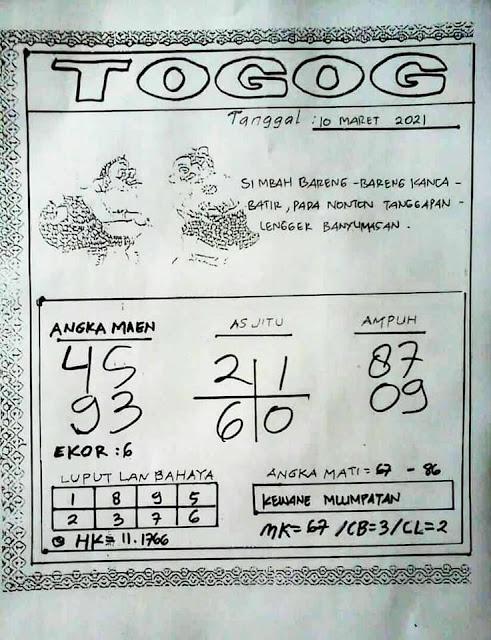 TOGOG
Tanggal : 10 MARET 2021
SIMBAH BARENG - BARENG KANCA -
BATIR, PADA NONTON TANGGAPAN -
LENGGER BANYUMASAN.
ANGKA MAEN
45
93
EKOR : 6
AS JITU
2 1
6 0
AMPUH
87
09
LUPUT LAN BAHAYA
1 8 9 5
2 3 7 6
HK= 11.1766
ANGKA MATI = 67 - 86
KEWANE MLUMPATAN
MK= 67 / CB=3 / CL=2